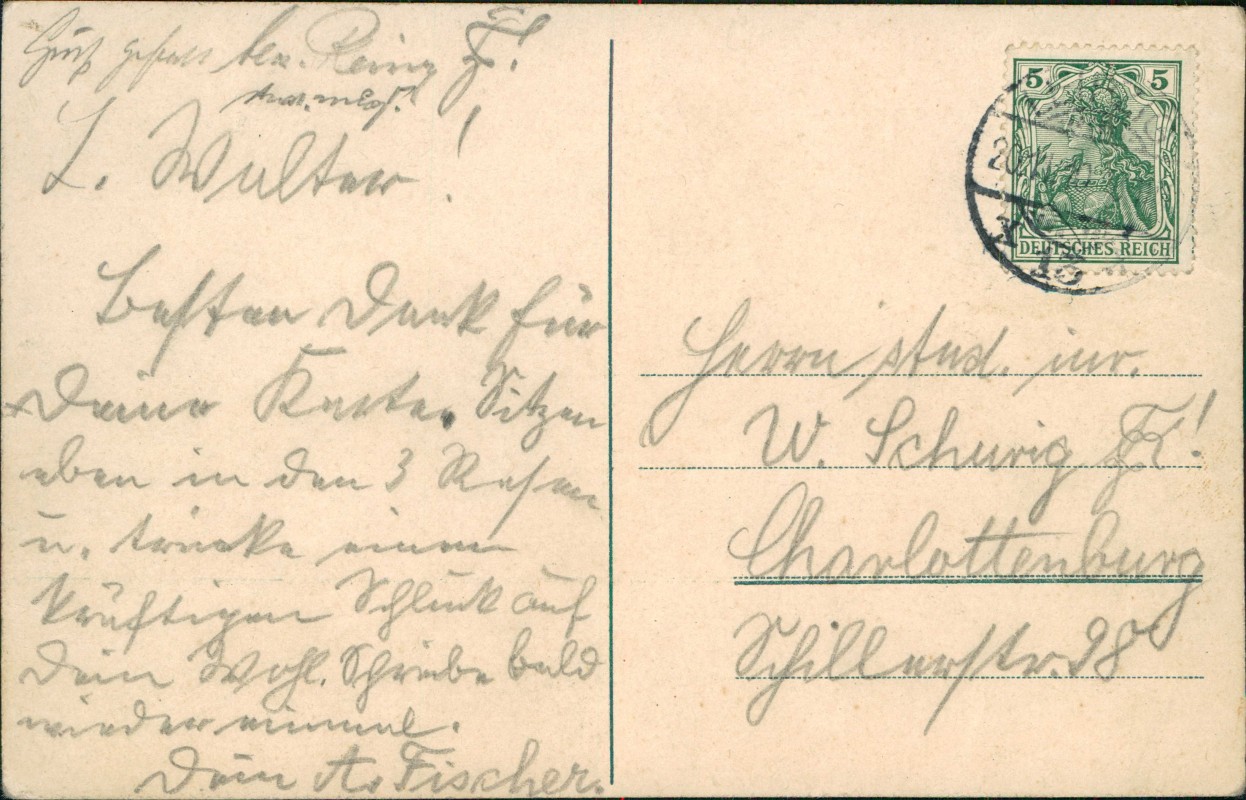 L. Walter!
Besten Dank für
Deine Karte. Sitzen
eben in den 3 Rosen
u. trinke einen
kräftigen Schluck auf
Dein Wohl. Schreibe bald
wieder einmal.
Dein A. Fischer.
5 5
DEUTSCHES REICH
Herrn stud.
W. Schurig
Charlottenburg
Schillerstr. 28